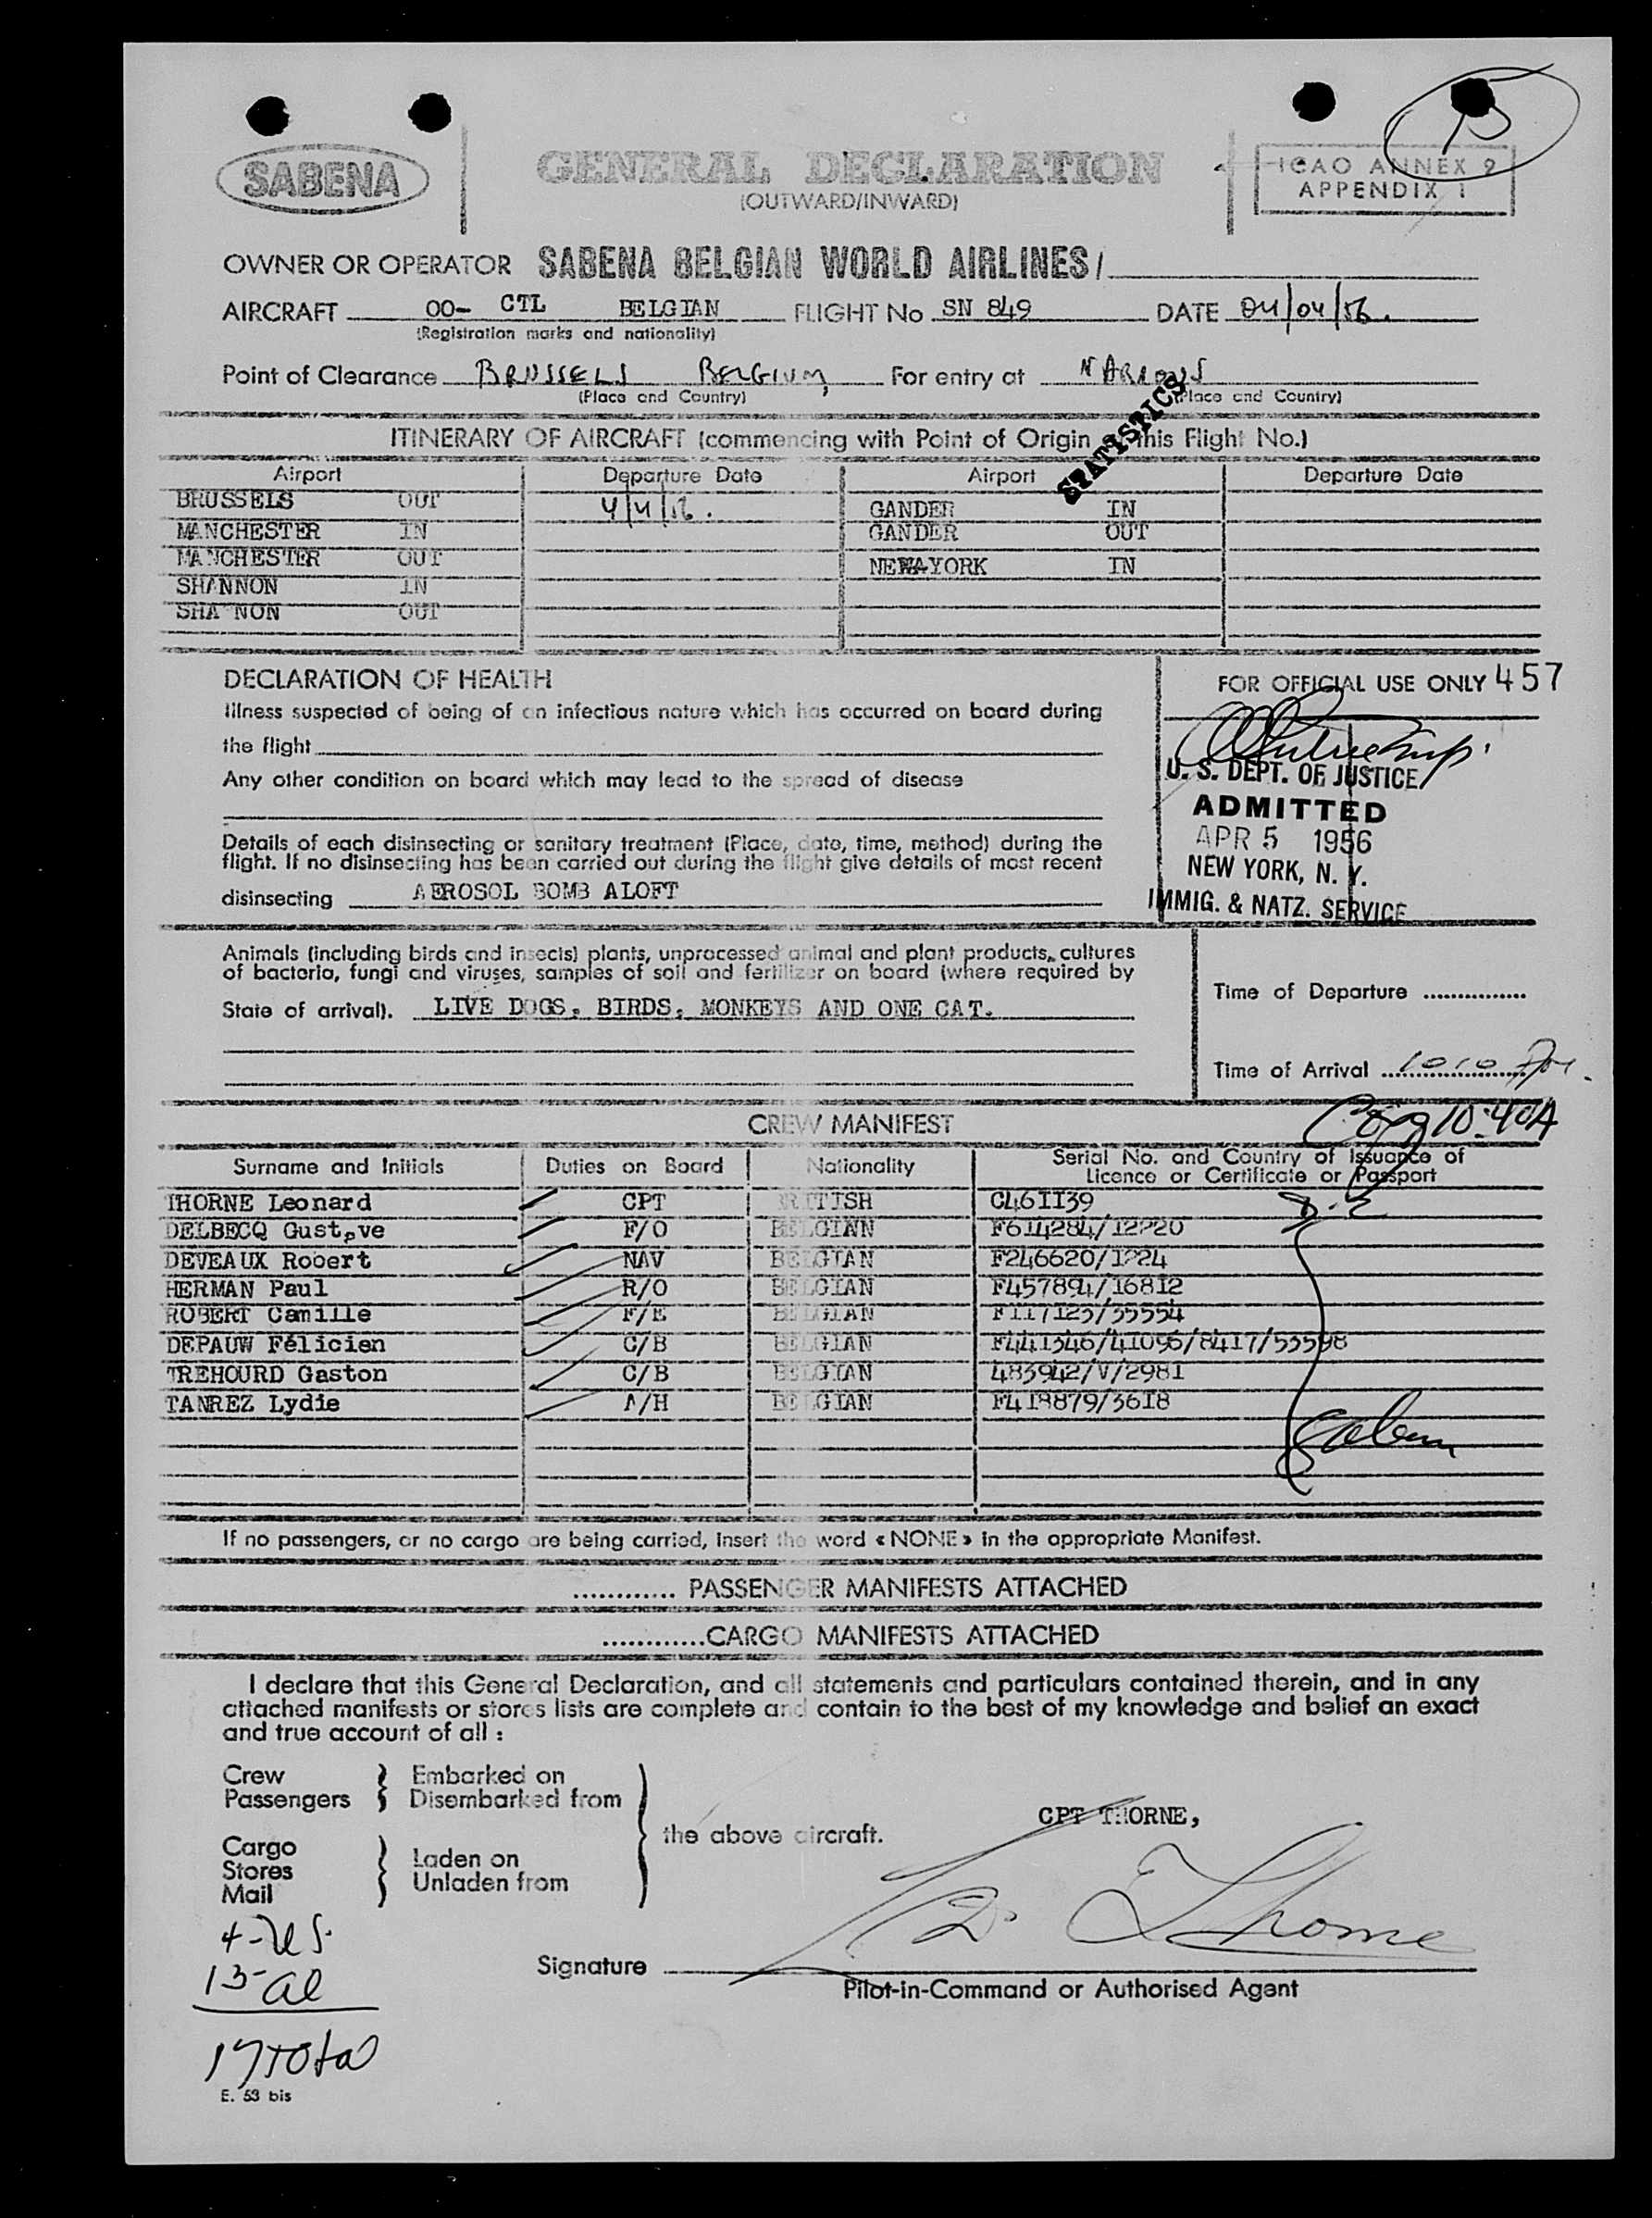 SABENA
GENERAL DECLARATION
(OUTWARD/INWARD)
ICAO ANNEX 9
APPENDIX 1
OWNER OR OPERATOR SABENA BELGIAN WORLD AIRLINES/
AIRCRAFT OO- CTL BELGIAN FLIGHT No SN 849 DATE 04/04/56.
(Registration marks and nationality)
Point of Clearance BRUSSELS BELGIUM, For entry at
(Place and Country) (Place and Country)
STATISTICS
ITINERARY OF AIRCRAFT (commencing with Point of Origin this Flight No.)
Airport Departure Date Airport Departure Date
BRUSSELS OUT 4/4/56. GANDER IN
MANCHESTER IN GANDER OUT
MANCHESTER OUT NEW YORK IN
SHANNON IN
SHA NON OUT
DECLARATION OF HEALTH
Illness suspected of being of an infectious nature which has occurred on board during
the flight
Any other condition on board which may lead to the spread of disease
Details of each disinsecting or sanitary treatment (Place, date, time, method) during the
flight. If no disinsecting has been carried out during the flight give details of most recent
disinsecting AEROSOL BOMB ALOFT
FOR OFFICIAL USE ONLY 457
U. S. DEPT. OF JUSTICE
ADMITTED
APR 5 1956
NEW YORK, N. Y.
IMMIG. & NATZ. SERVICE
Animals (including birds and insects) plants, unprocessed animal and plant products, cultures
of bacteria, fungi and viruses, samples of soil and fertilizer on board (where required by
State of arrival). LIVE DOGS, BIRDS, MONKEYS AND ONE CAT.
Time of Departure ...............
Time of Arrival 1010
10:40A
CREW MANIFEST
Surname and Initials Duties on Board Nationality Serial No. and Country of Issuance of
Licence or Certificate or Passport
THORNE Leonard CPT BRITISH CL61139
DELBECQ Gustave F/O BELGIAN
DEVEAUX Robert NAV BELGIAN
HERMAN Paul R/O BELGIAN F457894/16812
ROBERT Camille F/E BELGIAN F117123/35554
DEPAUW Félicien C/B BELGIAN
TREHOURD Gaston C/B BELGIAN 483942/V/2981
TANREZ Lydie A/H BELGIAN F418879/3618
If no passengers, or no cargo are being carried, insert the word « NONE » in the appropriate Manifest.
............ PASSENGER MANIFESTS ATTACHED
.............CARGO MANIFESTS ATTACHED
I declare that this General Declaration, and all statements and particulars contained therein, and in any
attached manifests or stores lists are complete and contain to the best of my knowledge and belief an exact
and true account of all :
Crew
Passengers
Embarked on
Disembarked from
Cargo
Stores
Mail
Laden on
Unladen from
the above aircraft.
CPT THORNE,
4-US.
13-al
17 Total
Signature
Pilot-in-Command or Authorised Agent
E. 53 bis